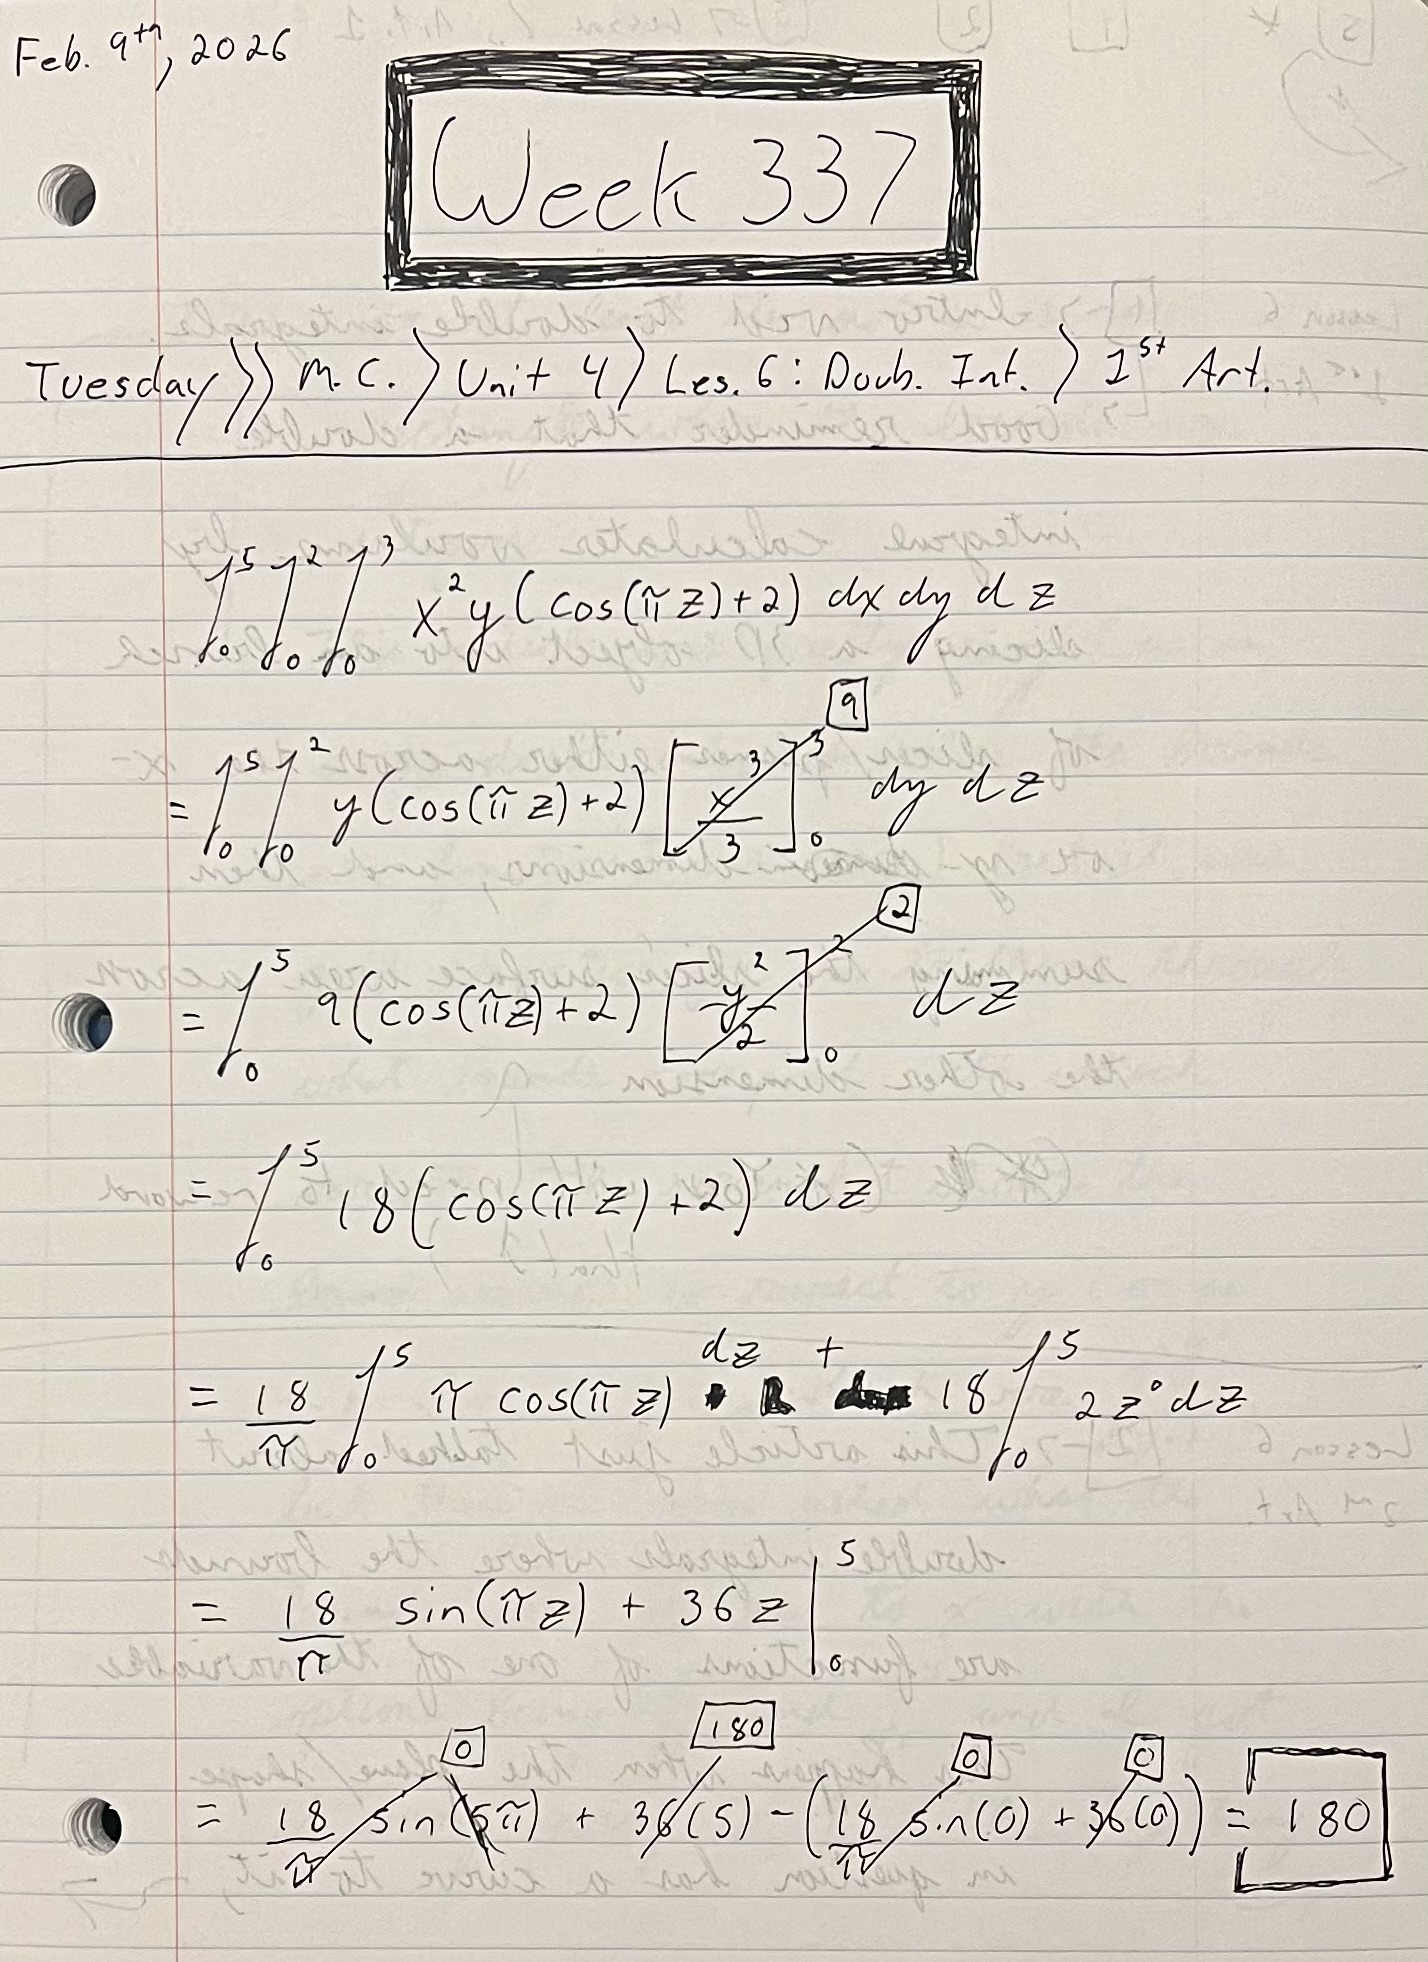 Feb. 9th, 2026
Week 337
Tuesday ⟩⟩ M.C. ⟩ Unit 4 ⟩ Les. 6: Doub. Int. ⟩ 1st Art.
∫₀⁵ ∫₀² ∫₀³ x²y(cos(πz)+2) dx dy dz
= ∫₀⁵ ∫₀² y(cos(πz)+2) [x³/3]₀³ dy dz 9
= ∫₀⁵ 9(cos(πz)+2) [y²/2]₀² dz 2
= ∫₀⁵ 18(cos(πz)+2) dz
= 18/π ∫₀⁵ π cos(πz) dz + 18 ∫₀⁵ 2z° dz
= 18/π sin(πz) + 36z |₀⁵
0 180 0 0
= 18/π sin(5π) + 36(5) - (18/π sin(0) + 36(0)) = 180